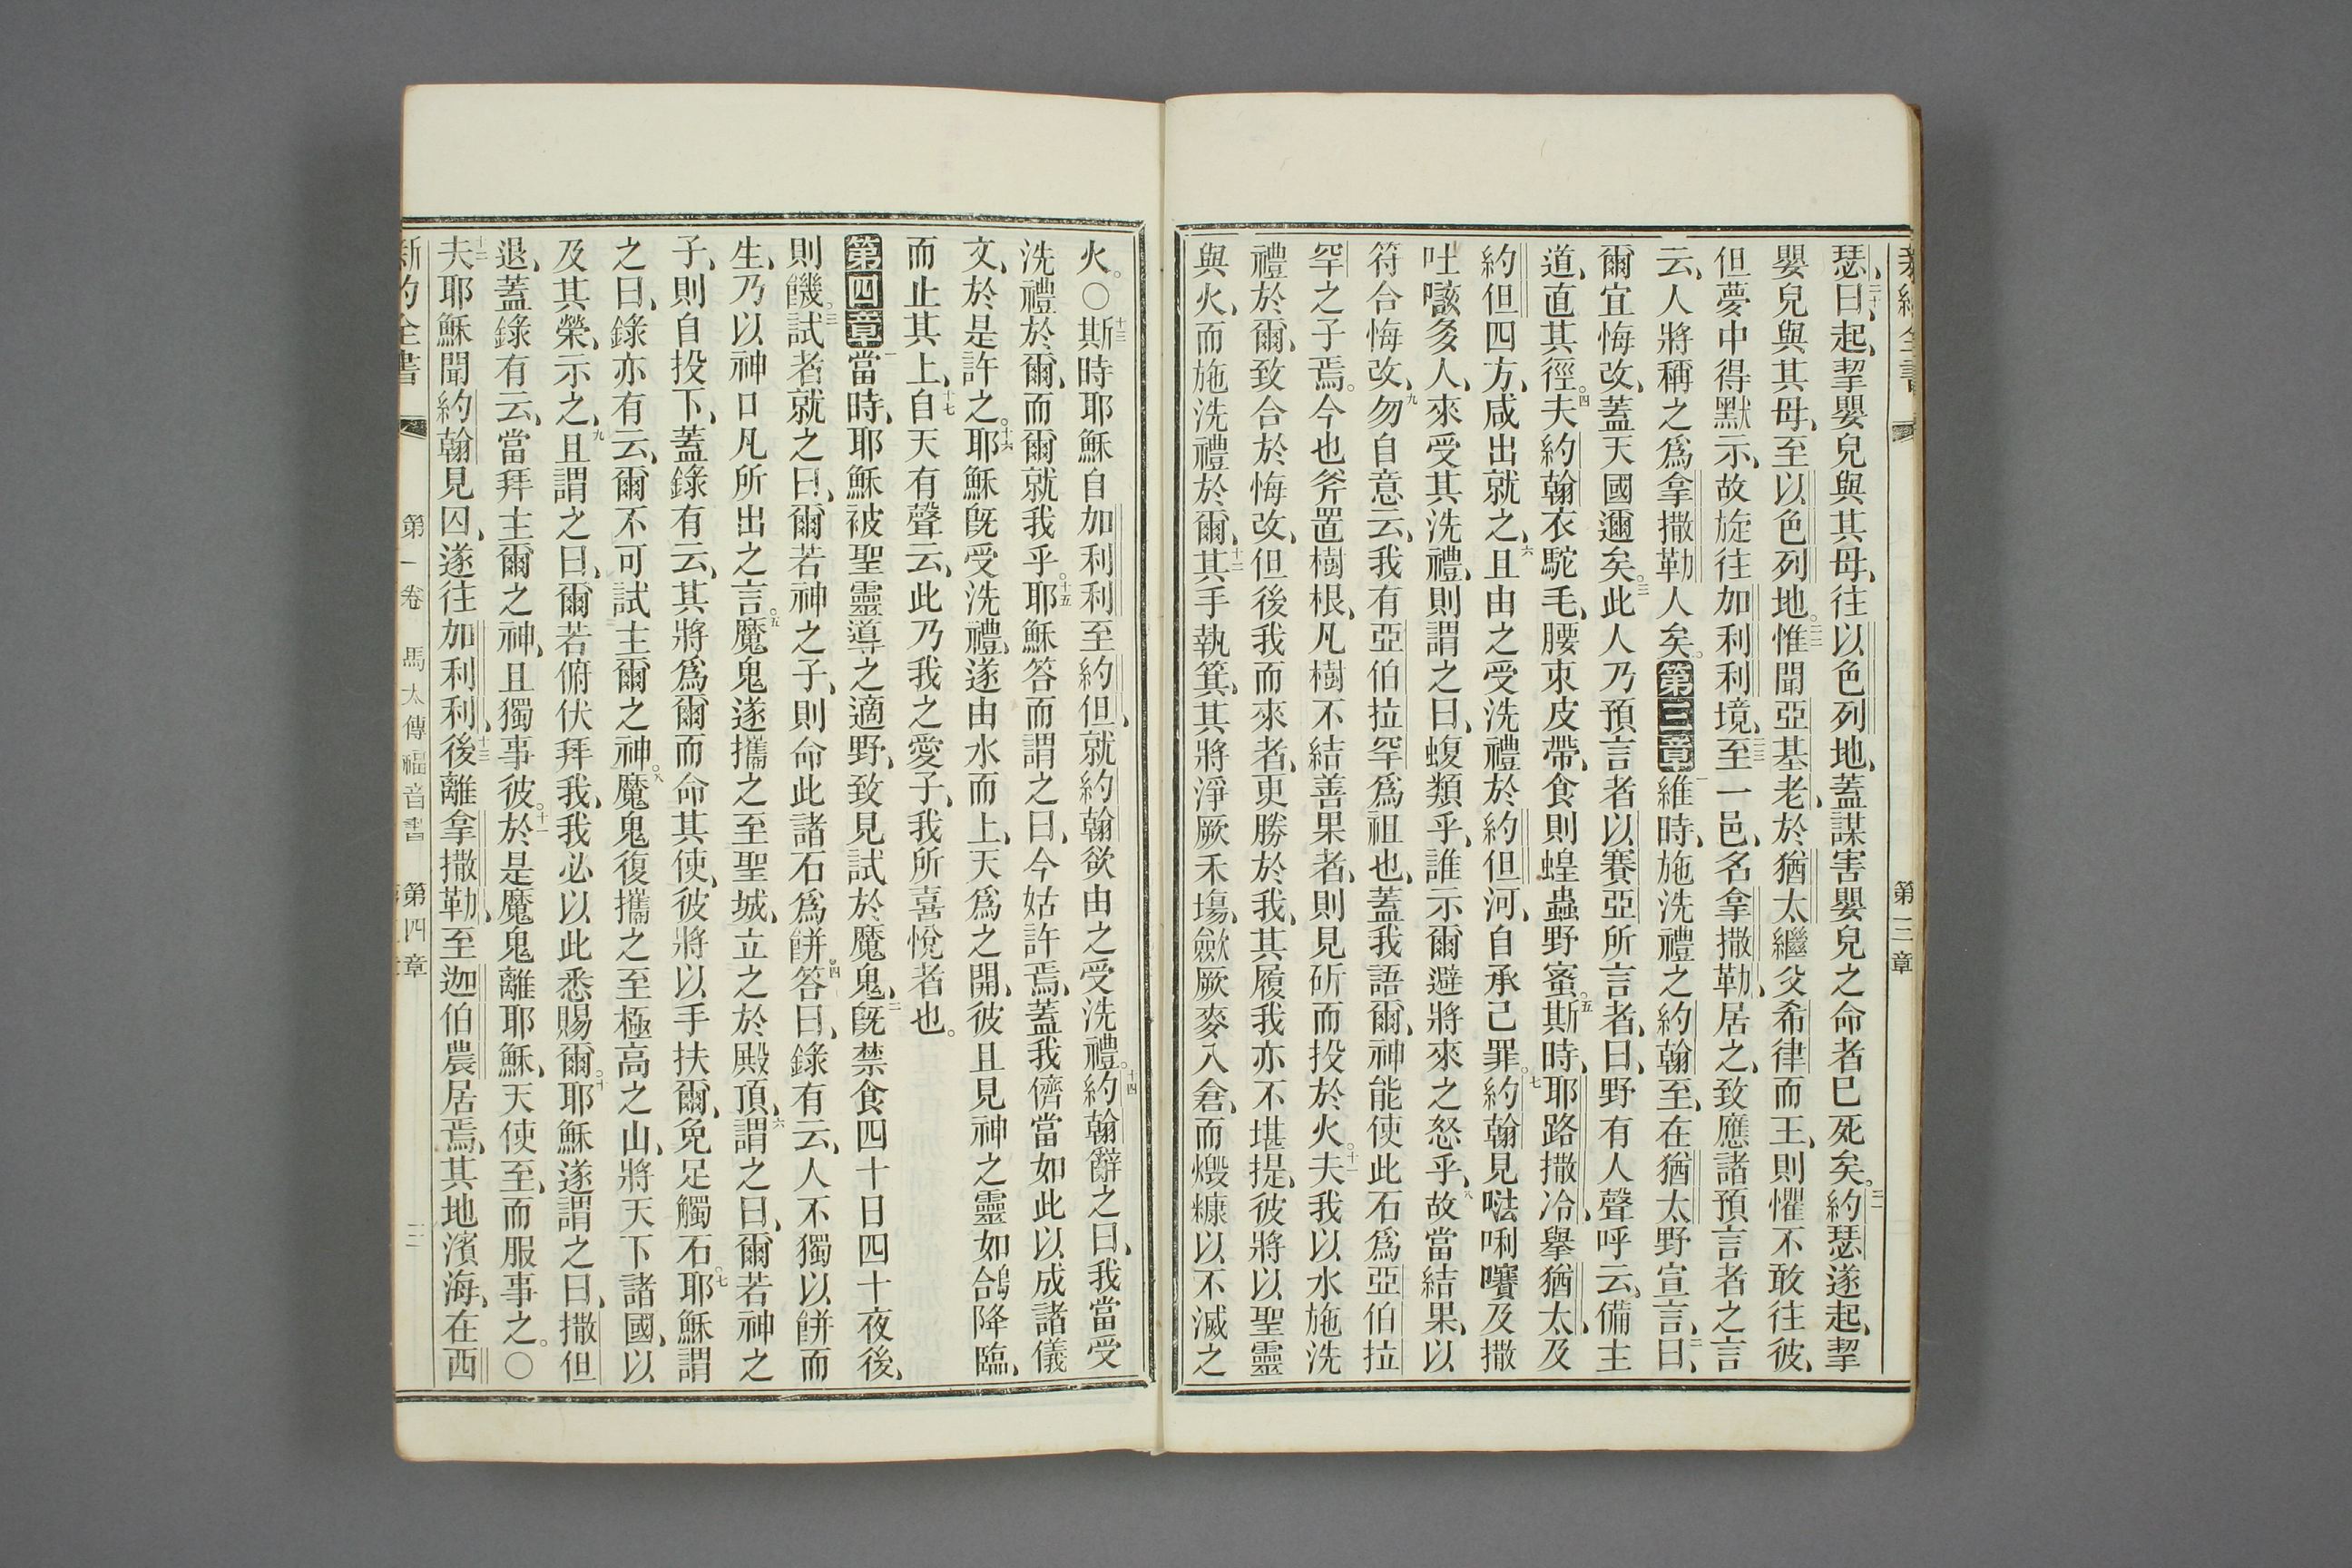 第三章
瑟、二十曰、起、挈嬰兒與其母、往以色列地、蓋謀害嬰兒之命者已死矣。二一約瑟遂起、挈
嬰兒與其母、至以色列地。二二惟聞亞基老、於猶太繼父希律而王、則懼不敢往彼、
但夢中得默示、故旋往加利利境、二三至一邑、名拿撒勒、居之、致應諸預言者之言
云、人將稱之爲拿撒勒人矣。第三章一維時、施洗禮之約翰至、在猶太野宣言、二曰、
爾宜悔改、蓋天國邇矣。三此人乃預言者以賽亞所言者、曰、野有人聲呼云、備主
道、直其徑。四夫約翰衣駝毛、腰束皮帶、食則蝗蟲野蜜。五斯時、耶路撒冷、舉猶太、及
約但四方、咸出就之、六且由之受洗禮於約但河、自承己罪。七約翰見𠵽唎㘔及撒
吐㗒多人、來受其洗禮、則謂之曰、蝮類乎、誰示爾避將來之怒乎、八故當結果、以
符合悔改、九勿自意云、我有亞伯拉罕爲祖也、蓋我語爾、神能使此石爲亞伯拉
罕之子焉。今也斧置樹根、凡樹不結善果者、則見斫而投於火。十一夫我以水施洗
禮於爾、致合於悔改、但後我而來者、更勝於我、其履我亦不堪提、彼將以聖靈
與火、而施洗禮於爾、十二其手執箕、其將淨厥禾塲、斂厥麥入倉、而燬糠以不滅之
火。○十三斯時耶穌自加利利至約但、就約翰欲由之受洗禮。十四約翰辭之曰、我當受
洗禮於爾、而爾就我乎。十五耶穌答而謂之曰、今姑許焉、蓋我儕當如此以成諸儀
文、於是許之。十六耶穌旣受洗禮、遂由水而上、天爲之開、彼且見神之靈如鴿降臨、
而止其上、十七自天有聲云、此乃我之愛子、我所喜悅者也。
第四章一當時、耶穌被聖靈導之適野、致見試於魔鬼、二旣禁食四十日四十夜後、
則饑。三試者就之曰、爾若神之子、則命此諸石爲餅。四答曰、錄有云、人不獨以餅而
生、乃以神口凡所出之言。五魔鬼遂攜之至聖城、立之於殿頂、六謂之曰、爾若神之
子、則自投下、蓋錄有云、其將爲爾而命其使、彼將以手扶爾、免足觸石。七耶穌謂
之曰、錄亦有云、爾不可試主爾之神。八魔鬼復攜之至極高之山、將天下諸國、以
及其榮、示之、九且謂之曰、爾若俯伏拜我、我必以此悉賜爾。十耶穌遂謂之曰、撒但
退、蓋錄有云、當拜主爾之神、且獨事彼。十一於是魔鬼離耶穌、天使至、而服事之。○
十二夫耶穌聞約翰見囚、遂往加利利、十三後離拿撒勒、至迦伯農居焉、其地濱海、在西
新約全書 第一卷 馬太傳福音書 第四章 三